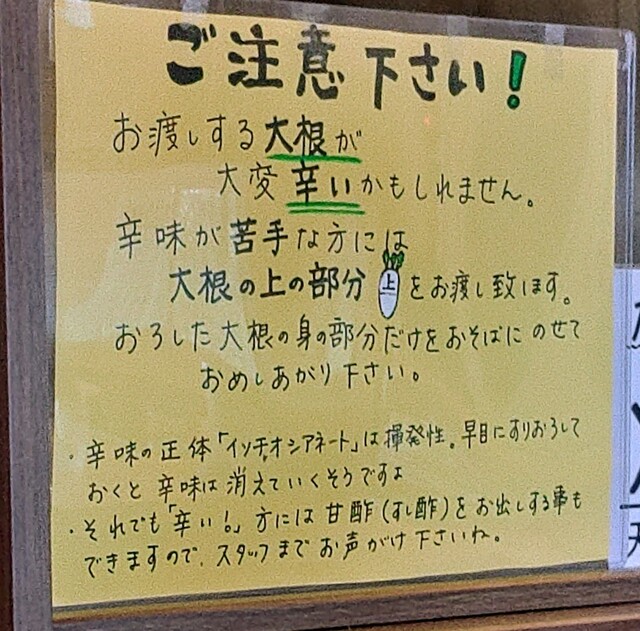 ご注意下さい!
お渡しする大根が
大変辛いかもしれません。
辛味が苦手な方には
大根の上の部分上をお渡し致ます。
おろした大根の身の部分だけをおそばにのせて
おめしあがり下さい。
・辛味の正体「イソチオシアネート」は揮発性。早目にすりおろして
おくと辛味は消えていくそうですよ
・それでも「辛い!」方には甘酢(すし酢)をお出しする事も
できますので、スタッフまでお声がけ下さいね。